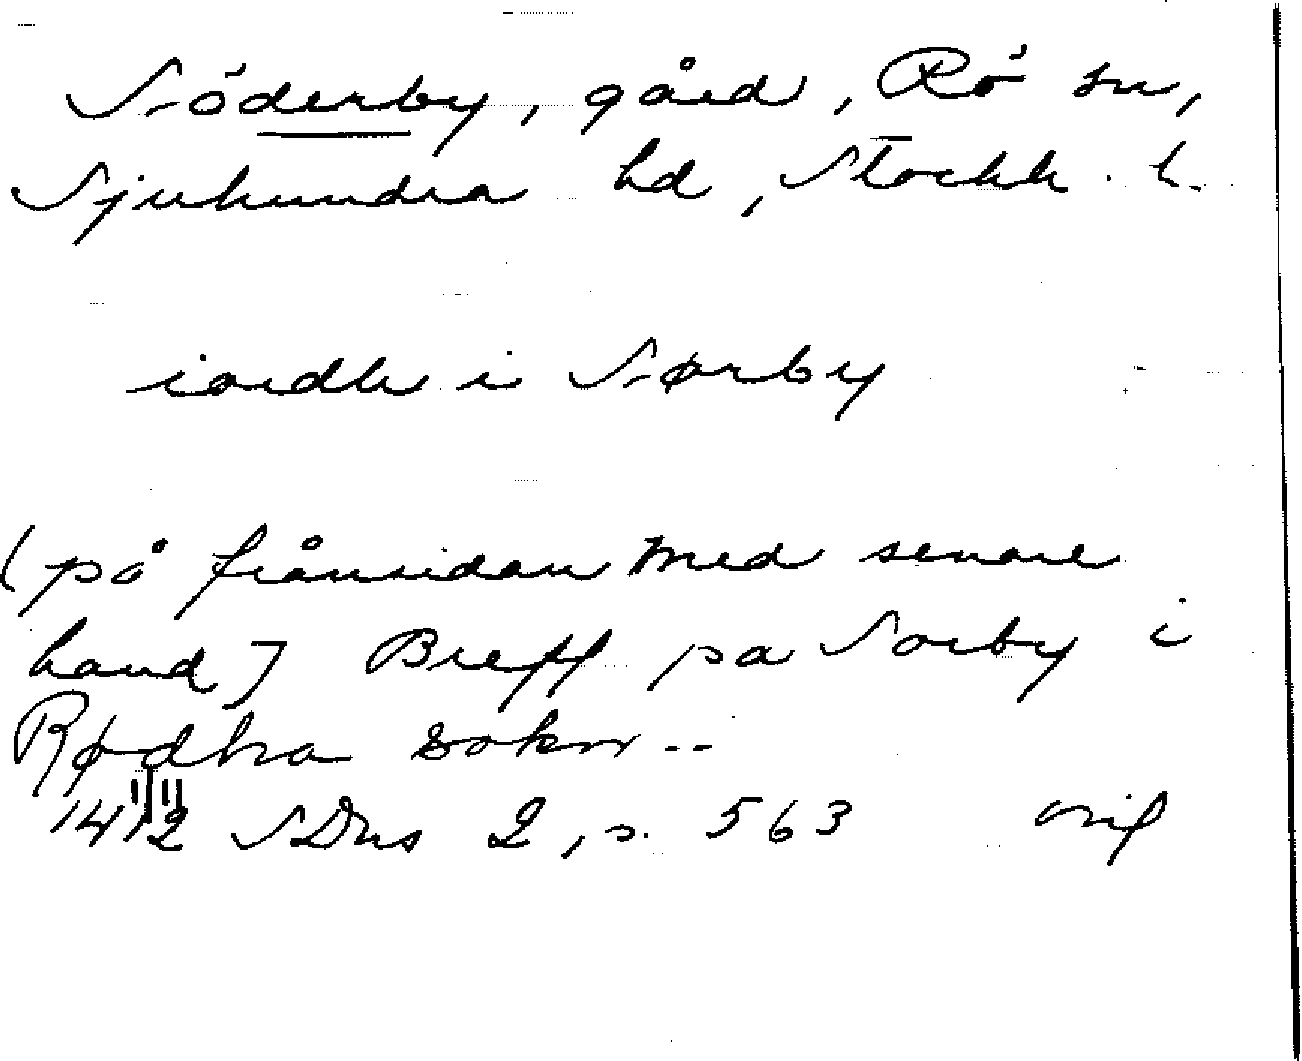 Söderby, gård, Rö sn,
Sjuhundra hd, Stockh. l.
iordh i Sørby
(på frånsidan med senare
hand] Breff pa Sorby i
Rødhra sokn --
1412 SDns 2, s. 563 orig